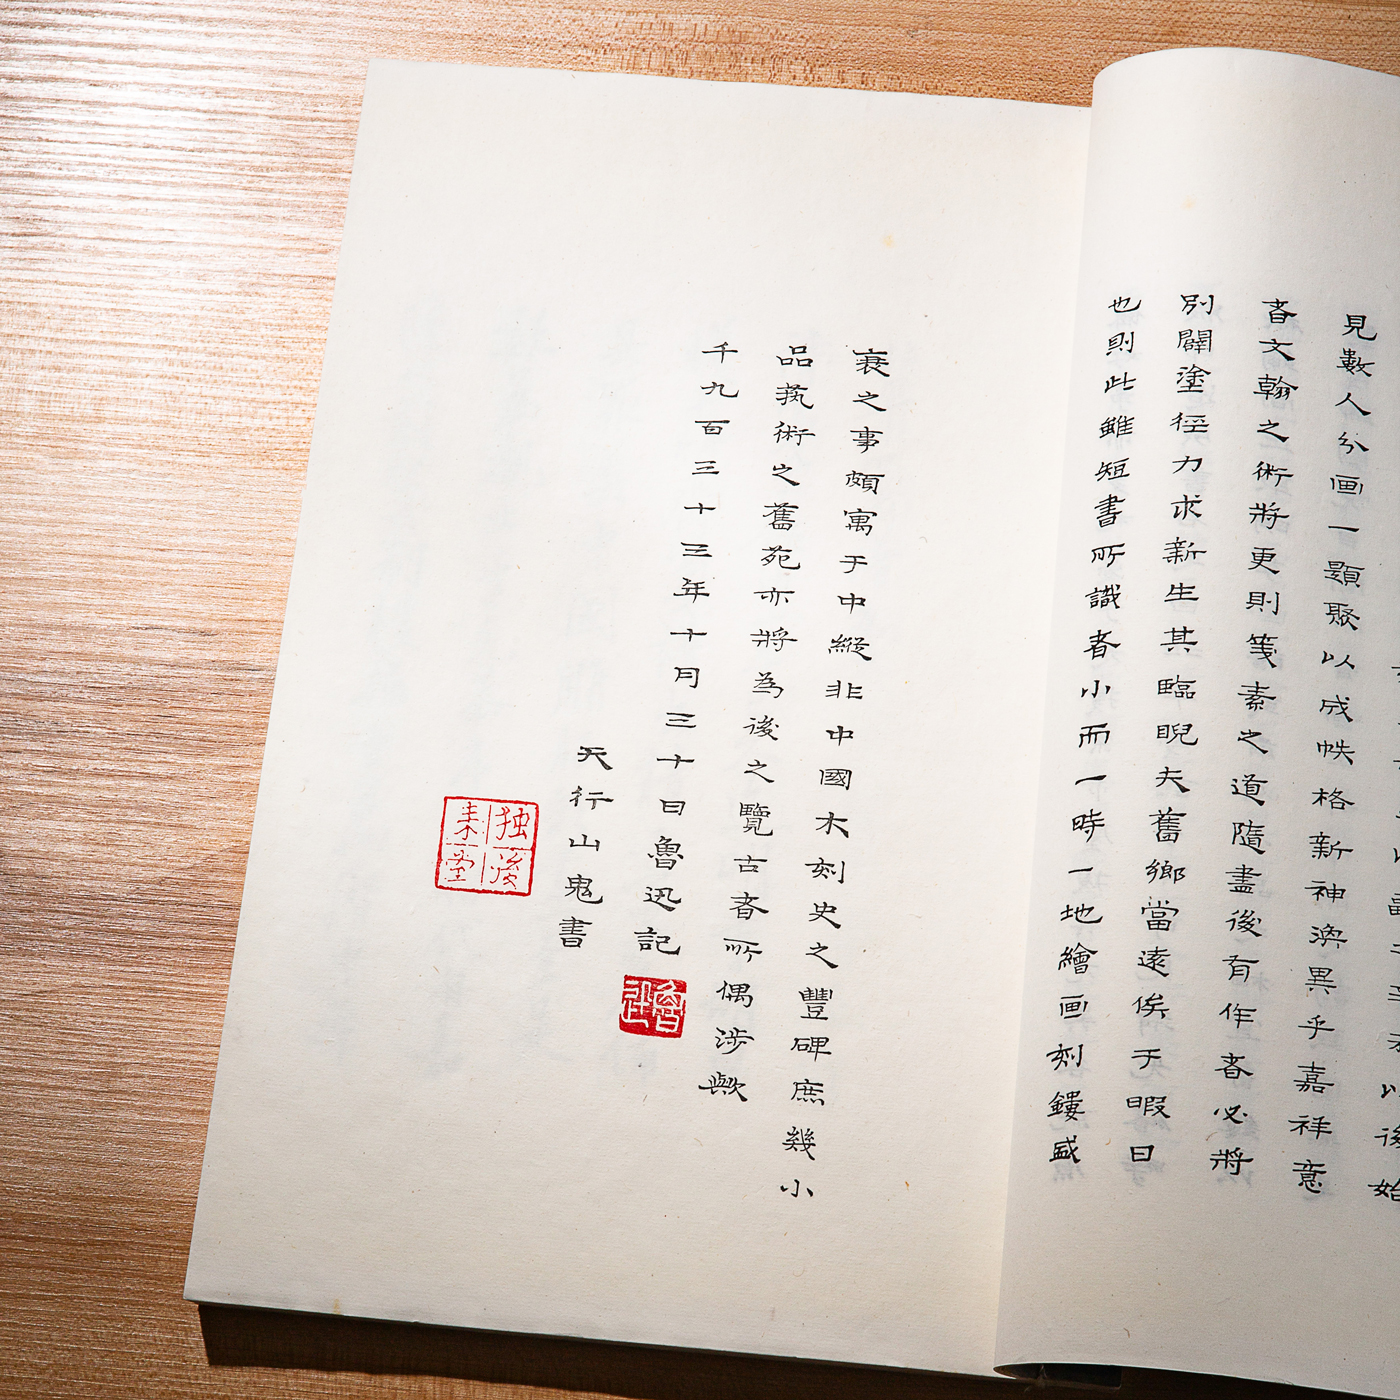 後始
見數人分画一題聚以成帙格新神渙異乎嘉祥意
者文翰之術將更則箋素之道隨盡後有作者必將
別闢塗徑力求新生其臨睨夫舊鄉當遠俟于暇日
也則此雖短書所識者小而一時一地繪画刻鏤盛
衰之事頗寓于中縱非中國木刻史之豐碑庶幾小
品蓺術之舊苑亦將為後之覽古者所偶涉歟
千九百三十三年十月三十日魯迅記
魯迅
天行山鬼書
独後来堂